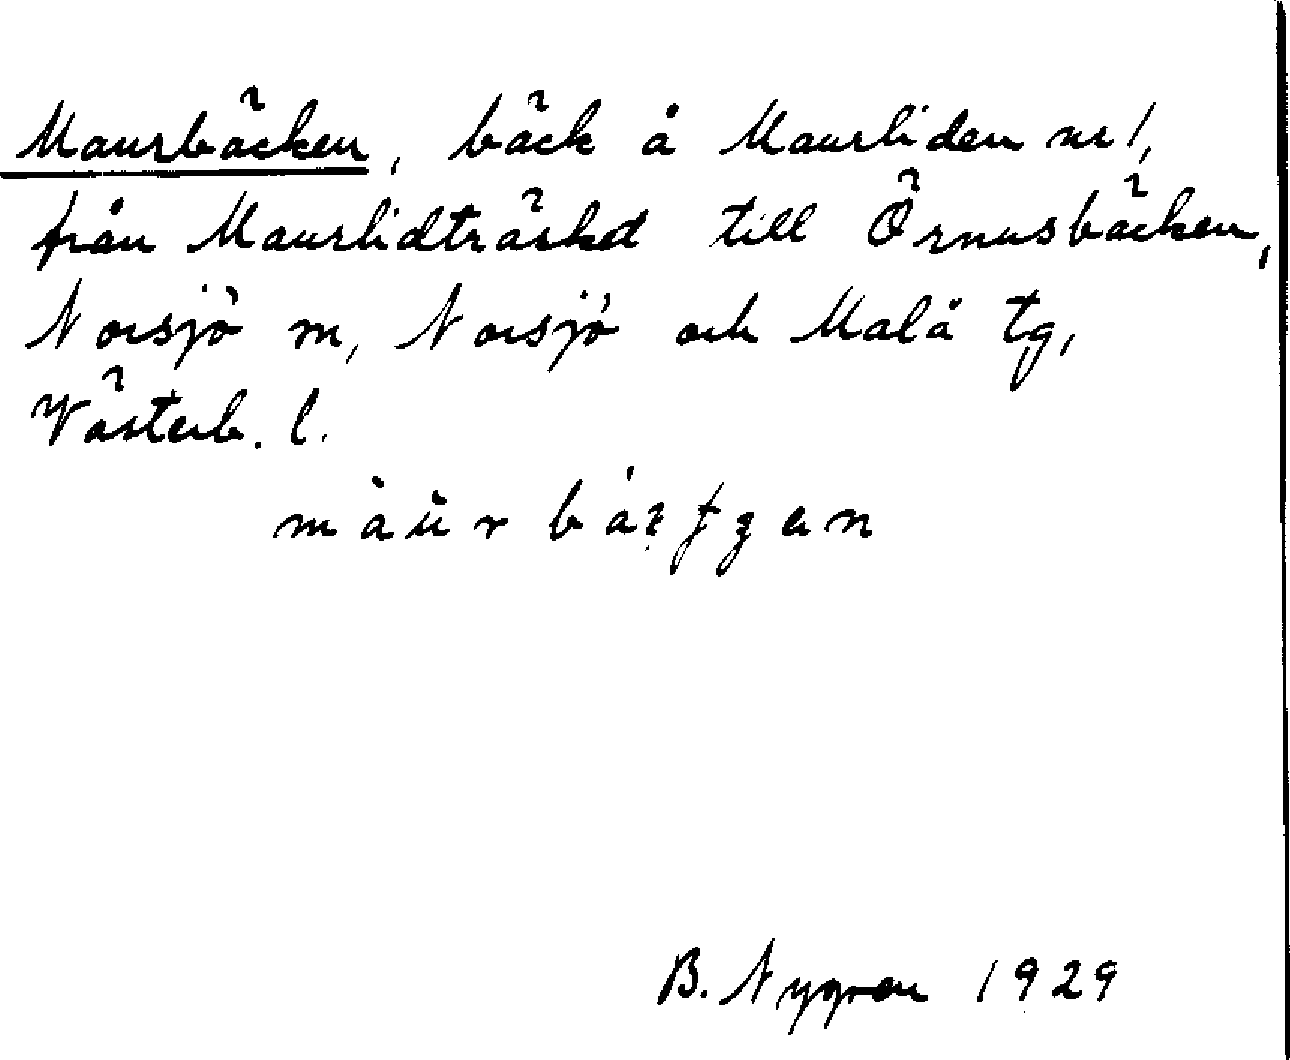 Maursbäcken, bäck å Maurliden nr 1,
från Maurlidträsket till Örnusbäcken,
Norsjö m, Norsjö och Malå tg,
Västerb. l.
B. Nygren 1929